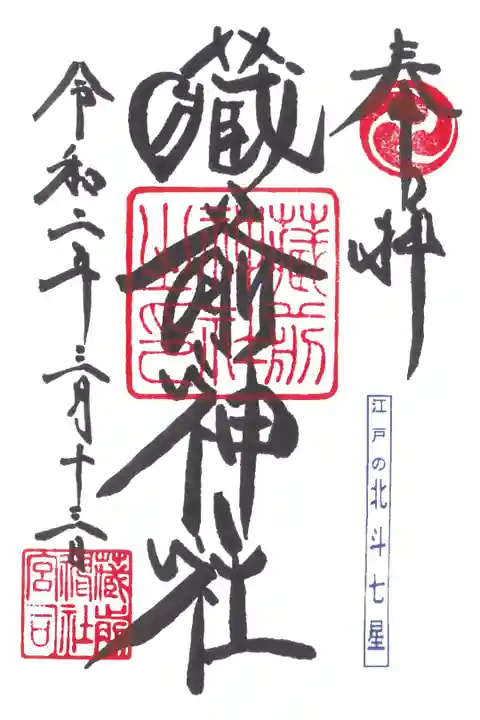 奉拝
江戸の北斗七星
藏前神社
藏前
神社
之印
令和二年三月十三日
藏前
神社
宮司